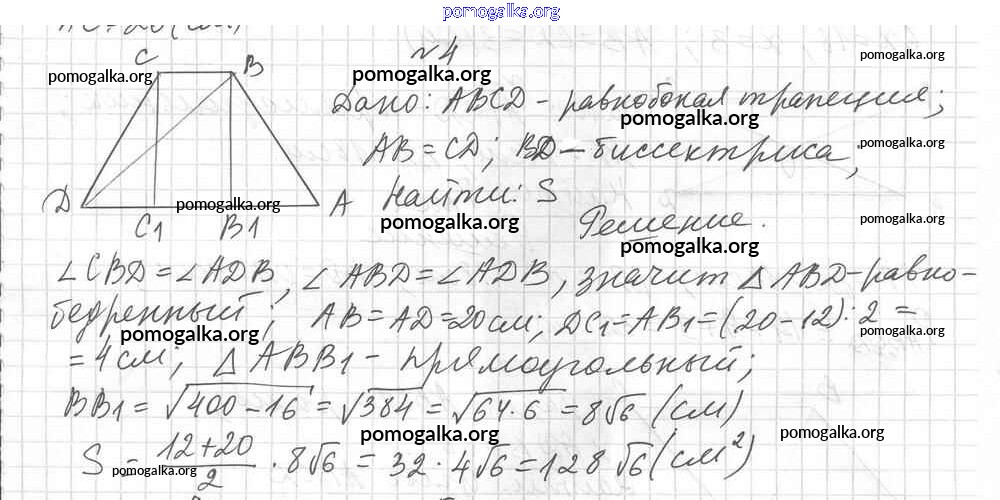 pomogalka.org
№4
C B
Дано: ABCD - равнобокая трапеция;
AB = CD; BD - биссектриса;
D C1 B1 A
Найти: S
Решение.
∠CBD = ∠ADB, ∠ABD = ∠ADB, значит △ABD - равно-
бедренный; AB = AD = 20 см; DC1 = AB1 = (20 - 12) : 2 =
= 4 см; △ABB1 - прямоугольный;
BB1 = √400 - 16 = √384 = √64 · 6 = 8√6 (см)
S = 12 + 20 / 2 · 8√6 = 32 · 4√6 = 128√6 (см²)
pomogalka.org
pomogalka.org
pomogalka.org
pomogalka.org
pomogalka.org
pomogalka.org
pomogalka.org
pomogalka.org
pomogalka.org
pomogalka.org
pomogalka.org
pomogalka.org
pomogalka.org
pomogalka.org